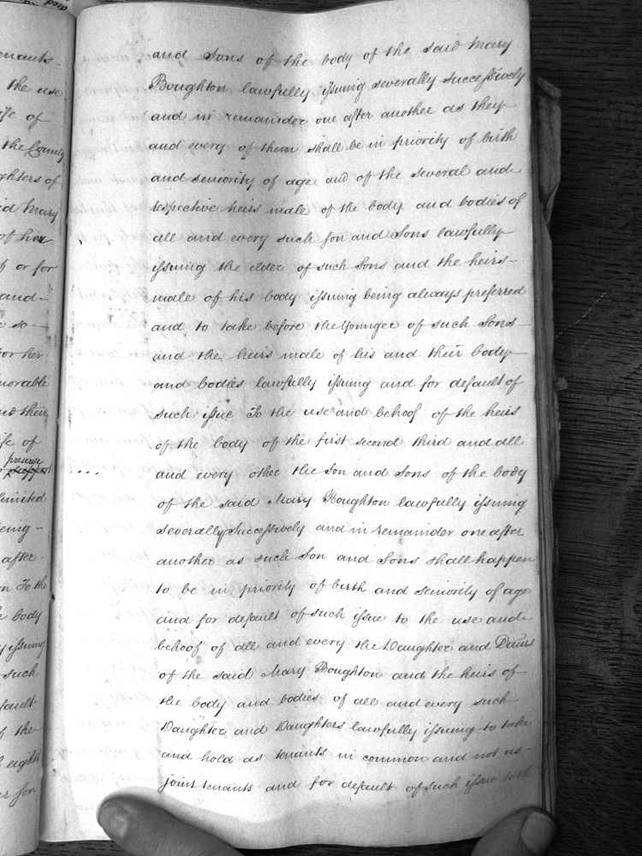 and Sons of the body of the said Mary
Boughton lawfully issuing severally successively
and in remainder one after another as they
and every of them shall be in priority of birth
and seniority of age and of the several and
respective heirs male of the body and bodies of
all and every such son and Sons lawfully
issuing the elder of such Sons and the heirs
male of his body issuing being always preferred
and to take before the Younger of such Sons
and the heirs male of his and their body
and bodies lawfully issuing and for default of
such issue To the use and behoof of the heirs
of the body of the first second third and all
and every other the Son and Sons of the body
of the said Mary Boughton lawfully issuing
severally Successively and in remainder one after
another as such Son and Sons shall happen
to be in priority of birth and seniority of age
and for default of such issue to the use and
behoof of all and every the Daughter and Daurs
of the said Mary Boughton and the heirs of
the body and bodies of all and every such
Daughter and Daughters lawfully issuing to take
and hold as tenants in common and not as
joint tenants and for default of such issue to the
the use
ife of
the County
ghters of
id Mary
of her
or for
and
so
or her
nourable
and their
ife of
preserve
limited
being
after
To the
body
issuing
such
fault
the
eighth